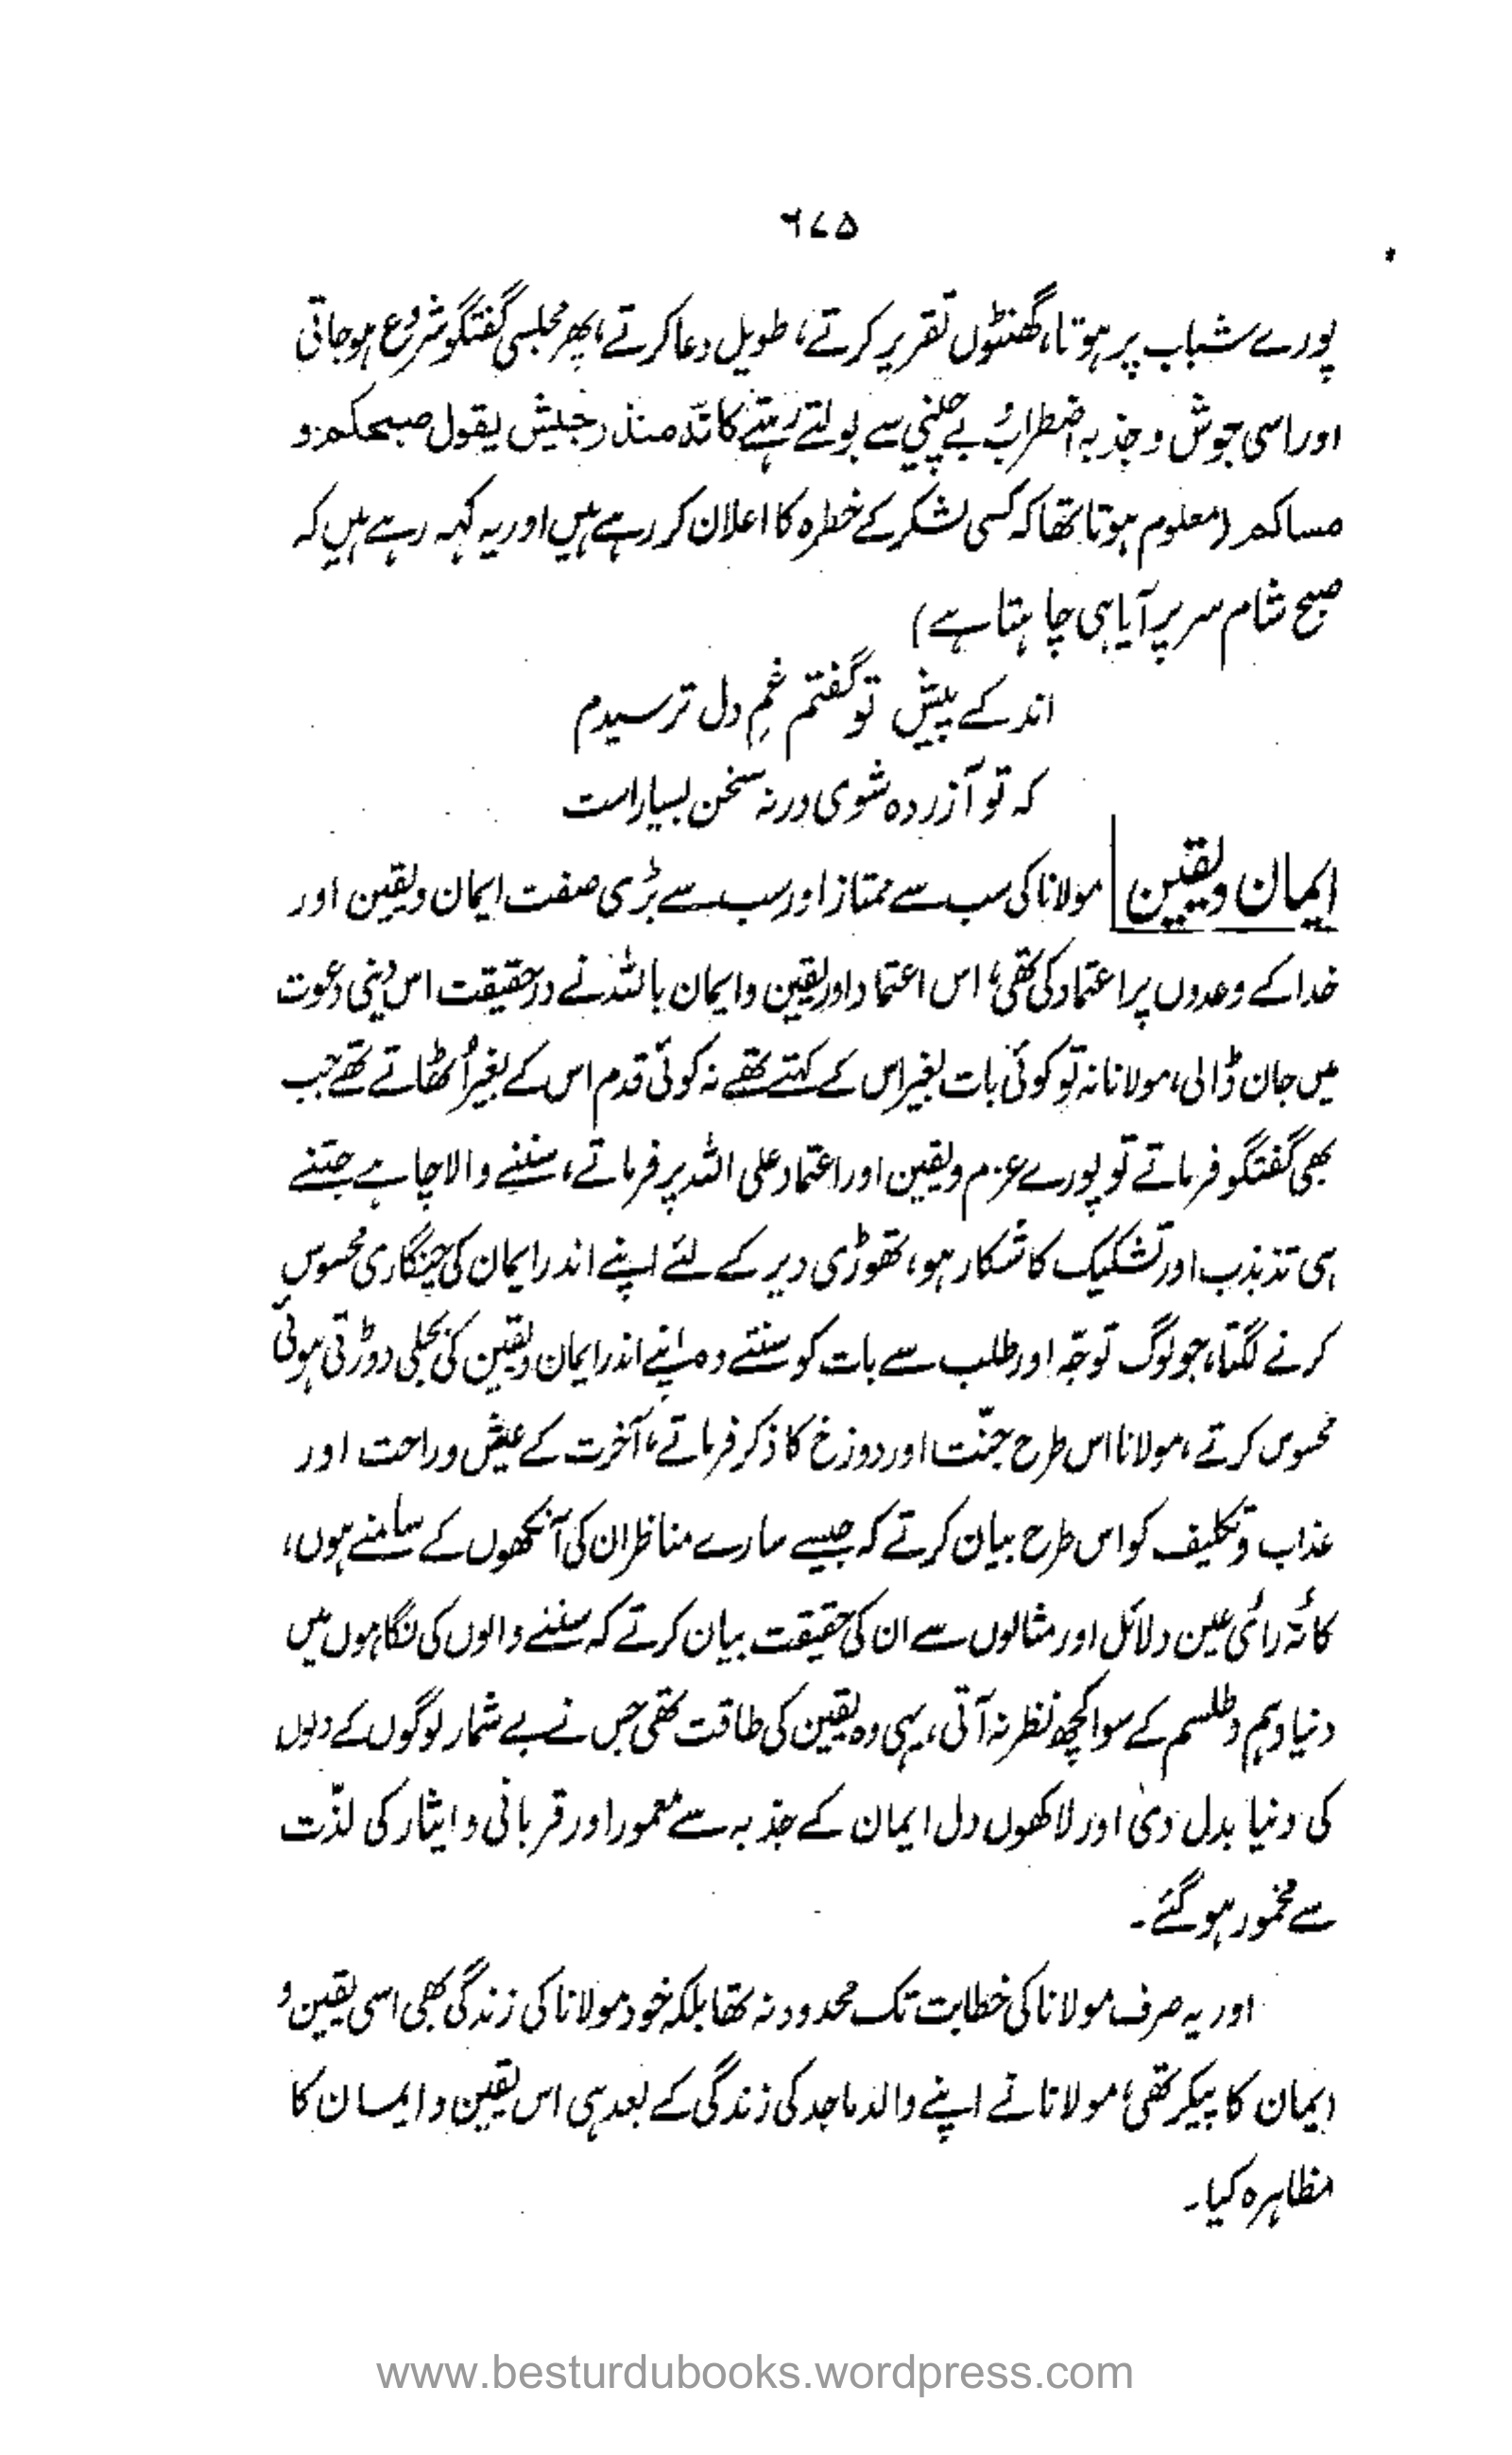 ٦٧٥
پورے شباب پر ہوتا، گھنٹوں تقریر کرتے، طویل دعا کرتے، پھر مجلسی گفتگو شروع ہو جاتی
اور اسی جوش و جذبہ اضطراب بے چینی سے بولتے رہتے کانّہ منذر جیش یقول صبحکم و
مساکم (معلوم ہوتا تھا کہ کسی لشکر کے خطرہ کا اعلان کر رہے ہیں اور یہ کہہ رہے ہیں کہ
صبح شام سر پر آیا ہی چاہتا ہے)
اندکے پیش تو گفتم غمِ دل ترسیدم
کہ تو آزردہ شوی ورنہ سخن بسیار است
ایمان و یقین مولانا کی سب سے ممتاز اور سب سے بڑی صفت ایمان و یقین اور
خدا کے وعدوں پر اعتماد کی تھی، اس اعتماد اور یقین و ایمان باللہ نے درحقیقت اس دینی دعوت
میں جان ڈالی، مولانا نہ تو کوئی بات بغیر اس کے کہتے تھے نہ کوئی قدم اس کے بغیر اُٹھاتے تھے جب
بھی گفتگو فرماتے تو پورے عزم و یقین اور اعتماد علی اللہ پر فرماتے، سننے والا چاہے جتنے
ہی تذبذب اور تشکیک کا شکار ہو، تھوڑی دیر کے لئے اپنے اندر ایمان کی چنگاری محسوس
کرنے لگتا، جو لوگ توجّہ اور طلب سے بات کو سنتے وہ اپنے اندر ایمان و یقین کی بجلی دوڑتی ہوئی
محسوس کرتے، مولانا اس طرح جنّت اور دوزخ کا ذکر فرماتے، آخرت کے عیش و راحت اور
عذاب و تکلیف کو اس طرح بیان کرتے کہ جیسے سارے مناظر ان کی آنکھوں کے سامنے ہوں،
کأنّہ رأی عین دلائل اور مثالوں سے ان کی حقیقت بیان کرتے کہ سننے والوں کی نگاہوں میں
دنیا وہم و طلسم کے سوا کچھ نظر نہ آتی، یہی وہ یقین کی طاقت تھی جس نے بے شمار لوگوں کے دلوں
کی دنیا بدل دی اور لاکھوں دل ایمان کے جذبہ سے معمور اور قربانی و ایثار کی لذّت
سے مخمور ہو گئے۔
اور یہ صرف مولانا کی خطابت تک محدود نہ تھا بلکہ خود مولانا کی زندگی بھی اسی یقین و
ایمان کا پیکر تھی، مولانا نے اپنے والد ماجد کی زندگی کے بعد ہی اس یقین و ایمان کا
مظاہرہ کیا۔
www.besturdubooks.wordpress.com